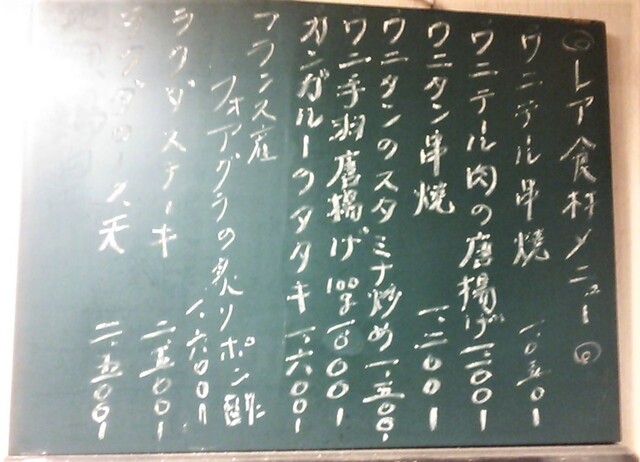 ◎レア食材メニュー◎
ワニテール串焼 一、〇五〇ー
ワニテール肉の唐揚げ 一、二〇〇ー
ワニタン串焼 一、二〇〇ー
ワニタンのスタミナ炒め 一、五〇〇ー
ワニ手羽唐揚げ 100g 一、〇〇〇ー
カンガルーのタタキ 一、六〇〇ー
フランス産
フォアグラの炙りポン酢 一、六〇〇ー
ラクダステーキ 二、五〇〇ー
二、五〇〇ー